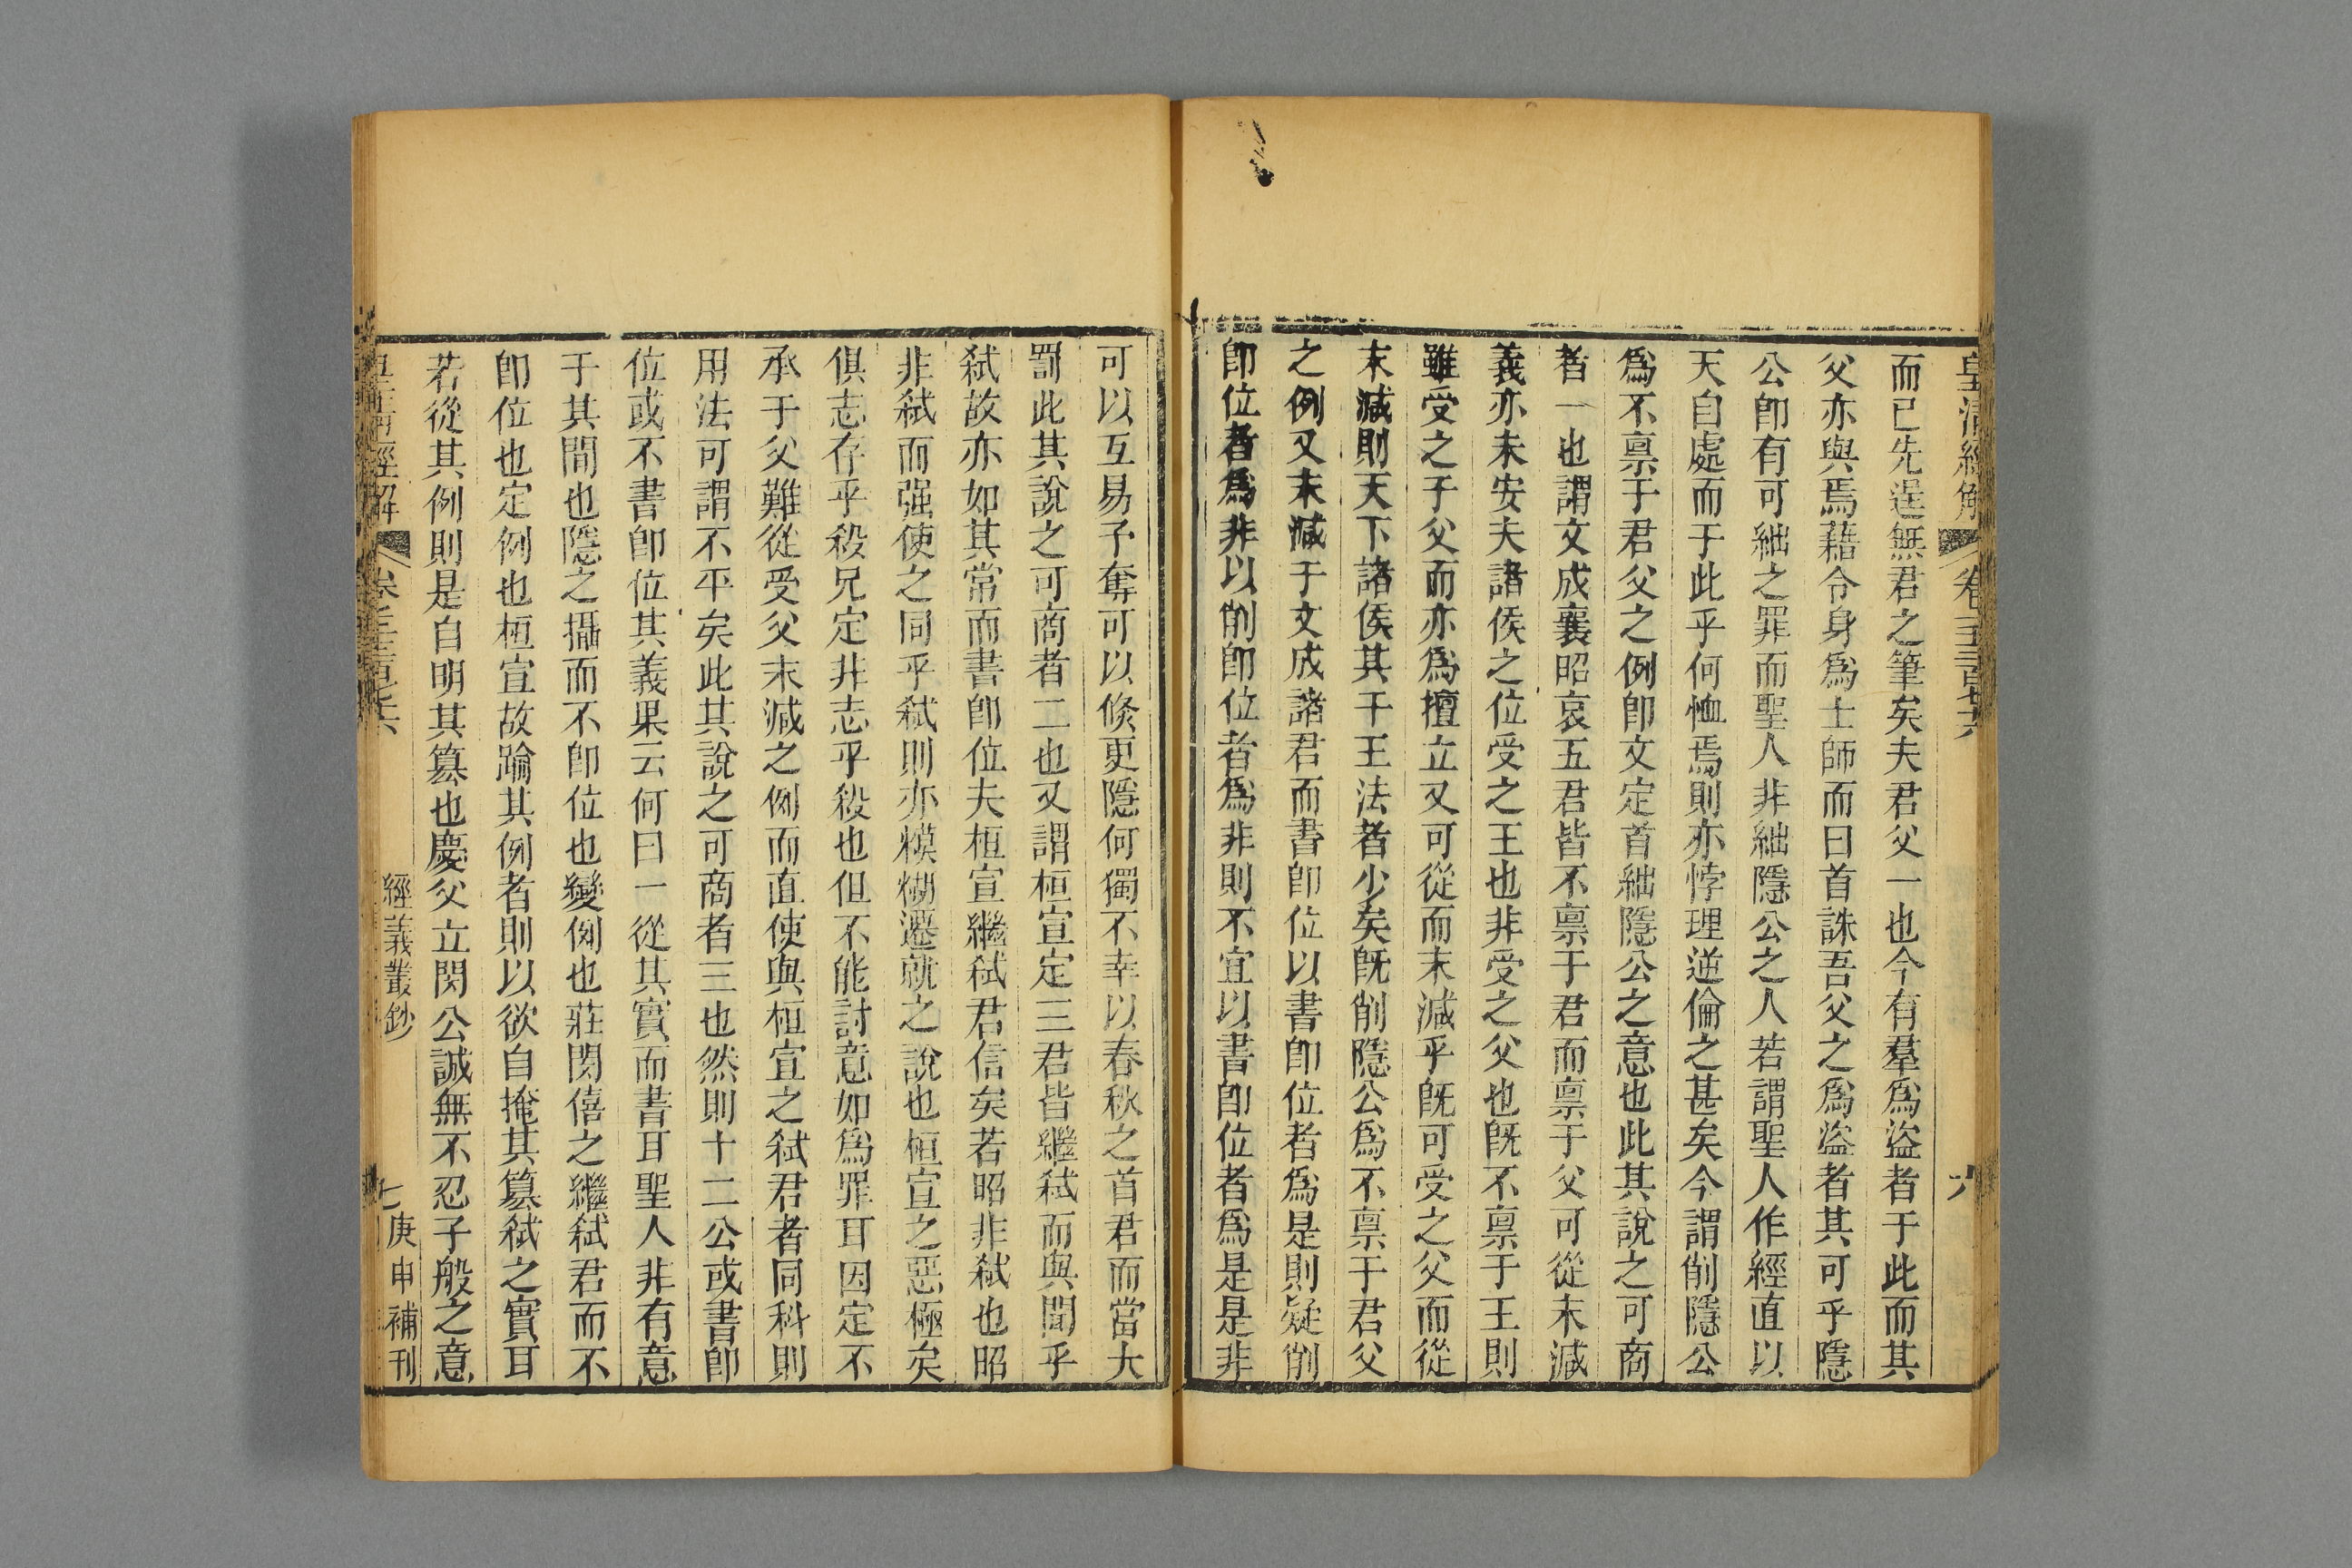 皇清經解 卷一千三百七十六 六
而已先逞無君之筆矣夫君父一也今有羣爲盜者于此而其
父亦與焉藉令身爲士師而曰首誅吾父之爲盜者其可乎隱
公卽有可絀之罪而聖人非絀隱公之人若謂聖人作經直以
天自處而于此乎何恤焉則亦悖理逆倫之甚矣今謂削隱公
爲不禀于君父之例卽文定首絀隱公之意也此其說之可商
者一也謂文成襄昭哀五君皆不禀于君而禀于父可從末減
義亦未安夫諸侯之位受之王也非受之父也旣不禀于王則
雖受之于父而亦爲擅立又可從而末減乎旣可受之父而從
末減則天下諸侯其干王法者少矣旣削隱公爲不禀于君父
之例又末減于文成諸君而書卽位以書卽位者爲是則疑削
卽位者爲非以削卽位者爲非則不宜以書卽位者爲是是非
可以互易予奪可以倏更隱何獨不幸以春秋之首君而當大
罰此其說之可商者二也又謂桓宣定三君皆繼弒而與聞乎
弒故亦如其常而書卽位夫桓宣繼弒君信矣若昭非弒也昭
非弒而强使之同乎弒則亦糢糊遷就之說也桓宣之惡極矣
俱志存乎殺兄定非志乎殺也但不能討意如爲罪耳因定不
承于父難從受父末減之例而直使與桓宣之弒君者同科則
用法可謂不平矣此其說之可商者三也然則十二公或書卽
位或不書卽位其義果云何曰一從其實而書耳聖人非有意
于其間也隱之攝而不卽位也變例也莊閔僖之繼弒君而不
卽位也定例也桓宣故踰其例者則以欲自掩其篡弒之實耳
若從其例則是自明其篡也慶父立閔公誠無不忍子般之意
皇清經解 卷一千三百七十六 經義叢鈔 七 庚申補刊